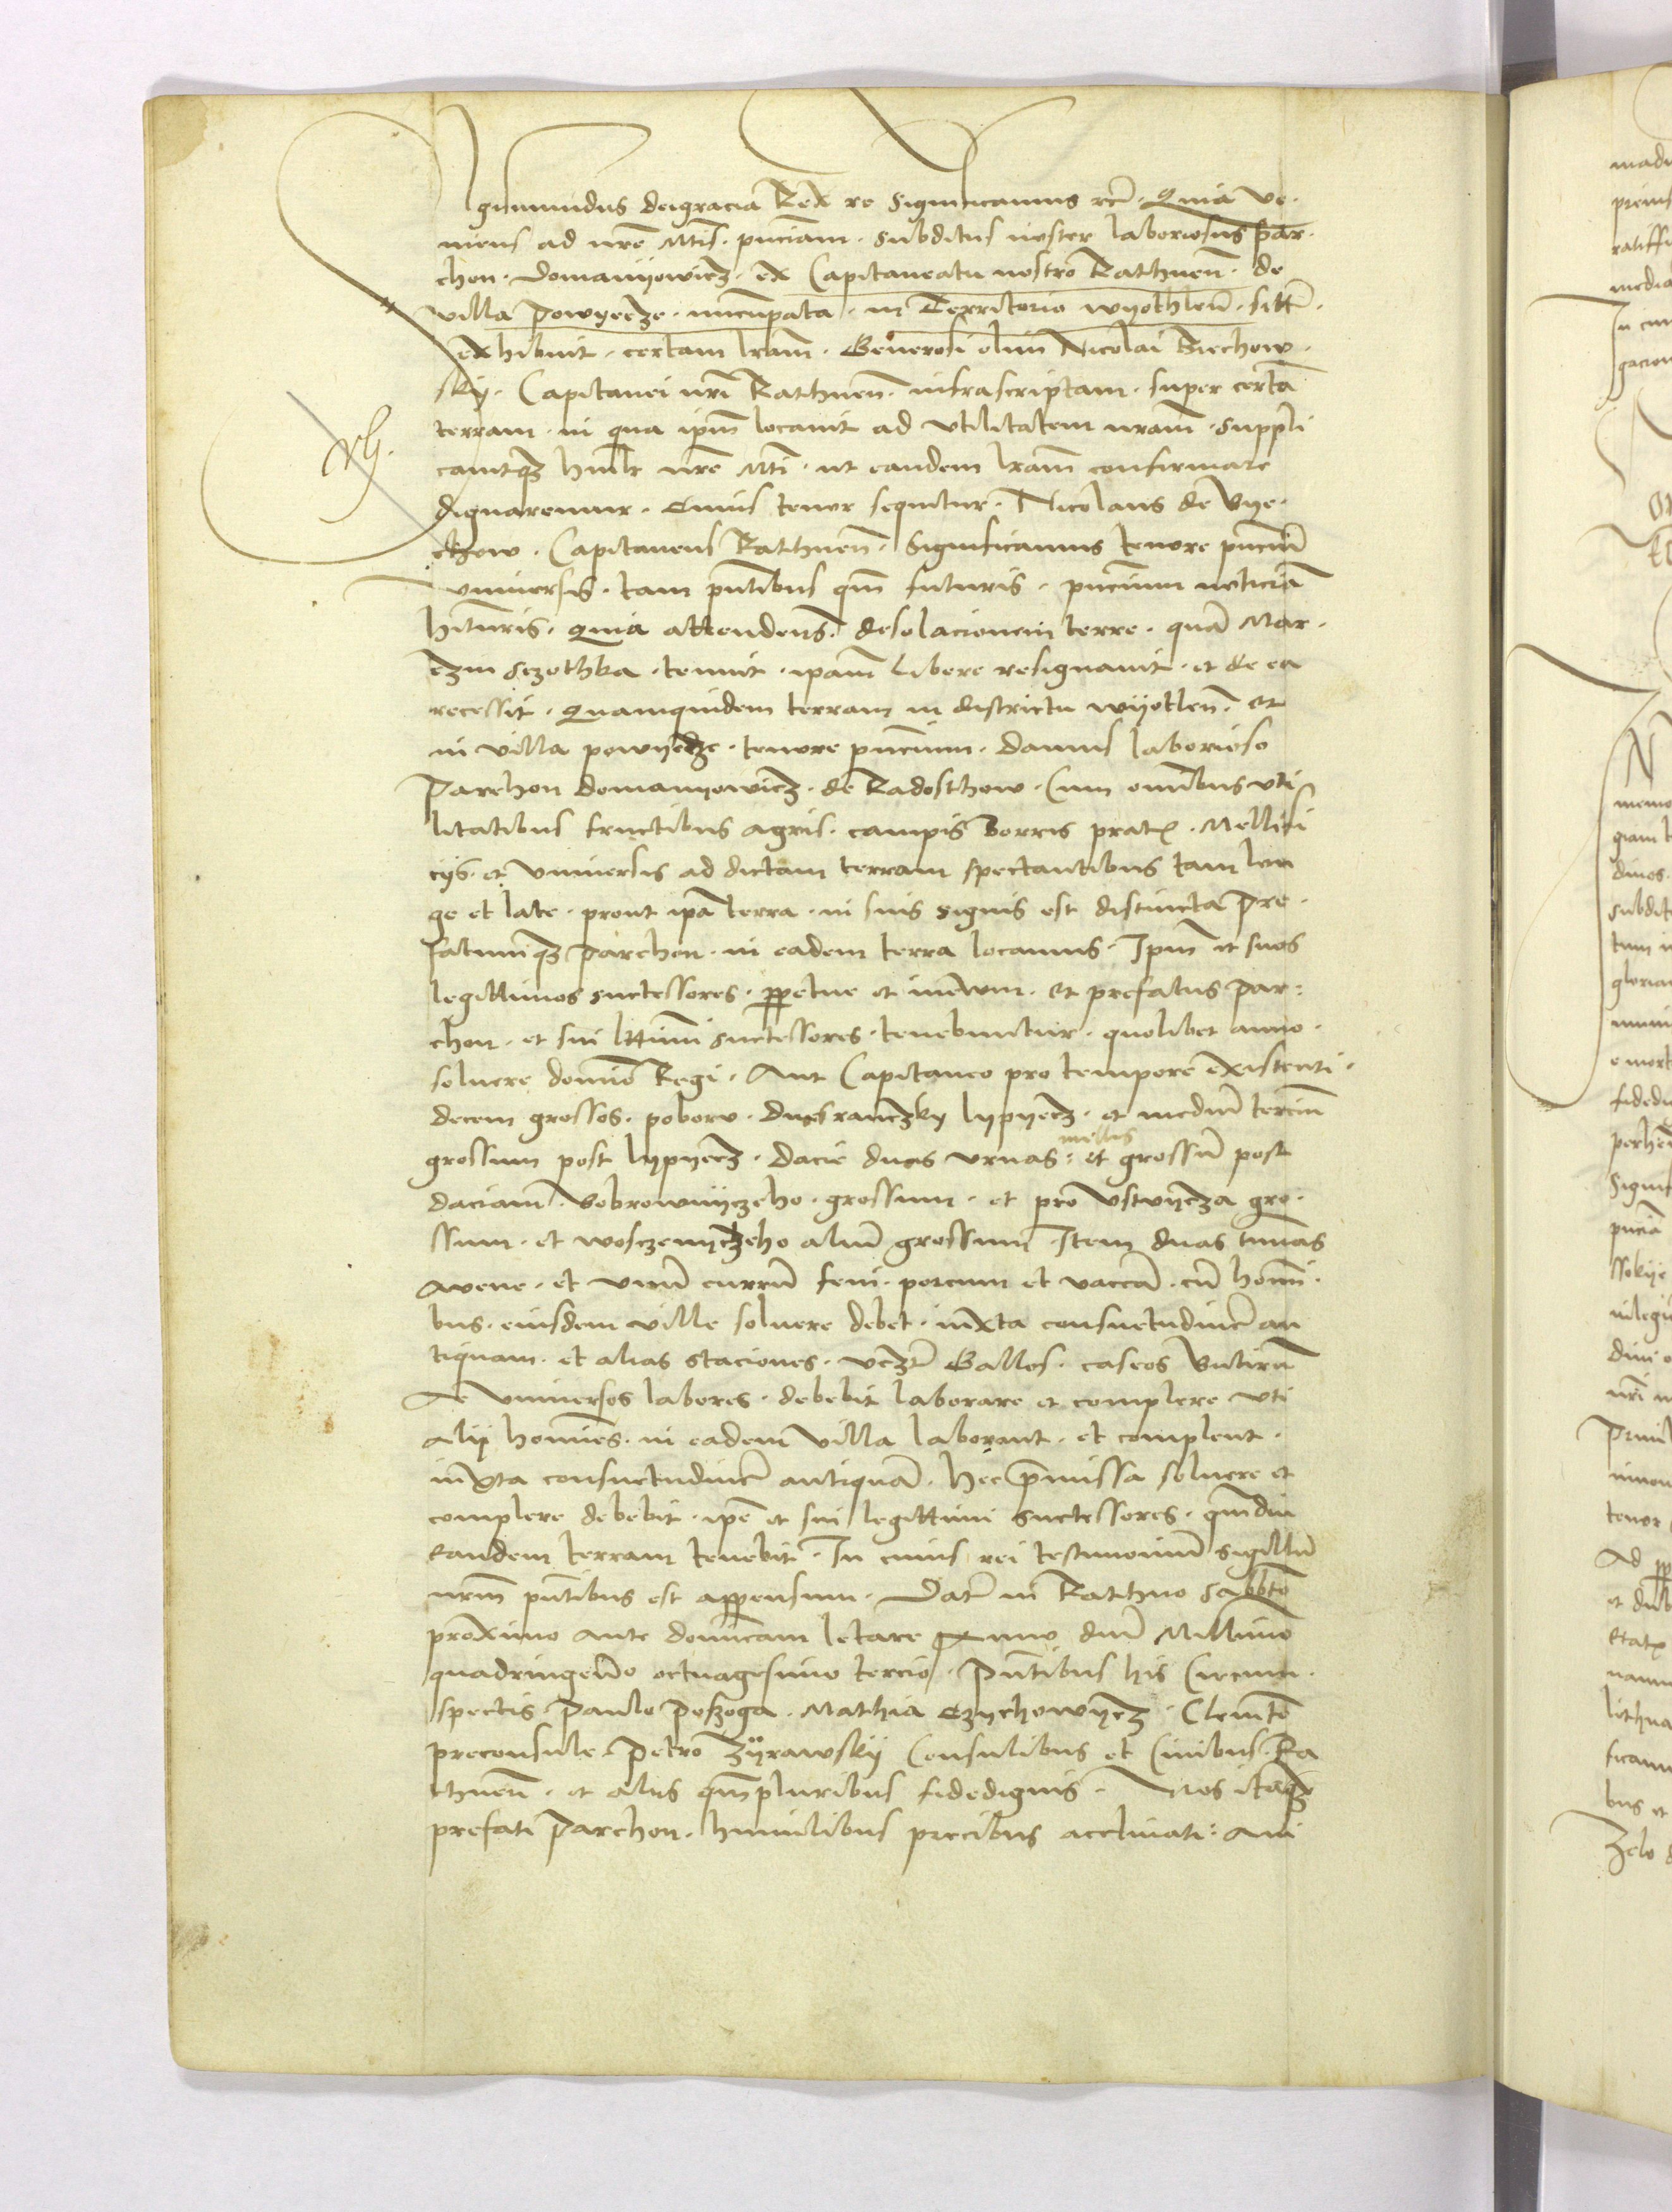 Sigismundus deigracia Rex rc Significamus rcr̄. Quia ve-
niens ad nr̄e Mtis. pn̄ciam. Subditus noster laboriosus Par-
chon. Domanyowicz. ex Capitaneatu nostro Rathnen̄. de
villa Powyecze. nuncupata. in Territorio wyothlen̄. sitt̄.
exhibuit. certam lr̄am. Generosi olim Nicolai Biechow-
sky. Capitanei nr̄i Rathnen̄. infrascriptam. super certa
terram. in qua ip̄m locavit ad utilitatem nr̄am. Suppli
cavitqȝ hu̅lr nr̄e Mti. ut eandem lr̄am confirmare
dignaremur. Cuius tenor sequitur. Nicolaus de Vye-
chow. Capitaneus Rathnen̄. Significamus tenore pn̄cium
universis. tam pn̄tibus qm̄ futuris. pn̄cium noticia̅
hituris. Quia attendens. desolacionem terre. qua̅ Mar-
czin Sczothka. tenuit. ipam̄ libere resignavit. et de ea
recessit. Quamquidem terram in districtu wyotlen̄. et
in villa powyecze. tenore pn̄cium. damus laborioso
Parchon domanyowicz. de Radosthow. Cum omnibus uti
litatibus fructibus agris. campis Borris prat. Mellifi
cijs. et universis ad dictam terram spectantibus tam lon
ge et late. prout ipa̅ terra. in suis signis est distincta Pre-
fatumqȝ Parchon. in eadem terra locamus. Ipm̄ et suos
legittimos successores. perpetue et in ewm. et prefatus Par-
chon. et sui lttimi successores. tenebuntur. quolibet anno.
solvere domino Regi. Aut Capitaneo pro tempore existenti.
decem grossos. poboru. lypyecz. et mediu̅ terciu̅
grossum post lypyecz. dacie duas urnas: mellis et grossu̅ post
daciam Bobrownyczeho. grossum. et pro Ustvycza gro-
ssum. et wosczenyczeho aliu̅ grossum Item duas tunas
Avene. et unu̅ curru̅ feni. porcum et vacca̅. cu̅ homi-
bus. eiusdem ville solvere debet. iuxta consuetudine̅ an
tiquam. et alias staciones. Gallos. caseos Butiru̅
Ac universos labores. debebit laborare et complere uti
alij homines. in eadem villa laborant. et complent.
iuxta consuetudine̅ antiqua̅. hec premissa solvere et
complere debebit. ipe̅ et sui legittimi successores. qm̄diu
eandem terram tenebit. In cuius rei testimoniu̅ sigillu̅
nr̄m pn̄tibus est appensum. Dat̄ in Rathno Sabbto̅
proximo ante dominicam letare Anno dn̄i Millimo
quadringen̅o octuagesimo tercio. Pn̄tibus his Circum-
spectis Paulo Poszoga. Mathia Czychowycz. Clemte̅
preconsule. Petro Zyrawsky Consulibus et Civibus. Ra
thnen̄. et alijs qm̄pluribus fidedignis. Nos itaqȝ
prefati Parchon. humilibus precibus acclinati: Qui
xlj.